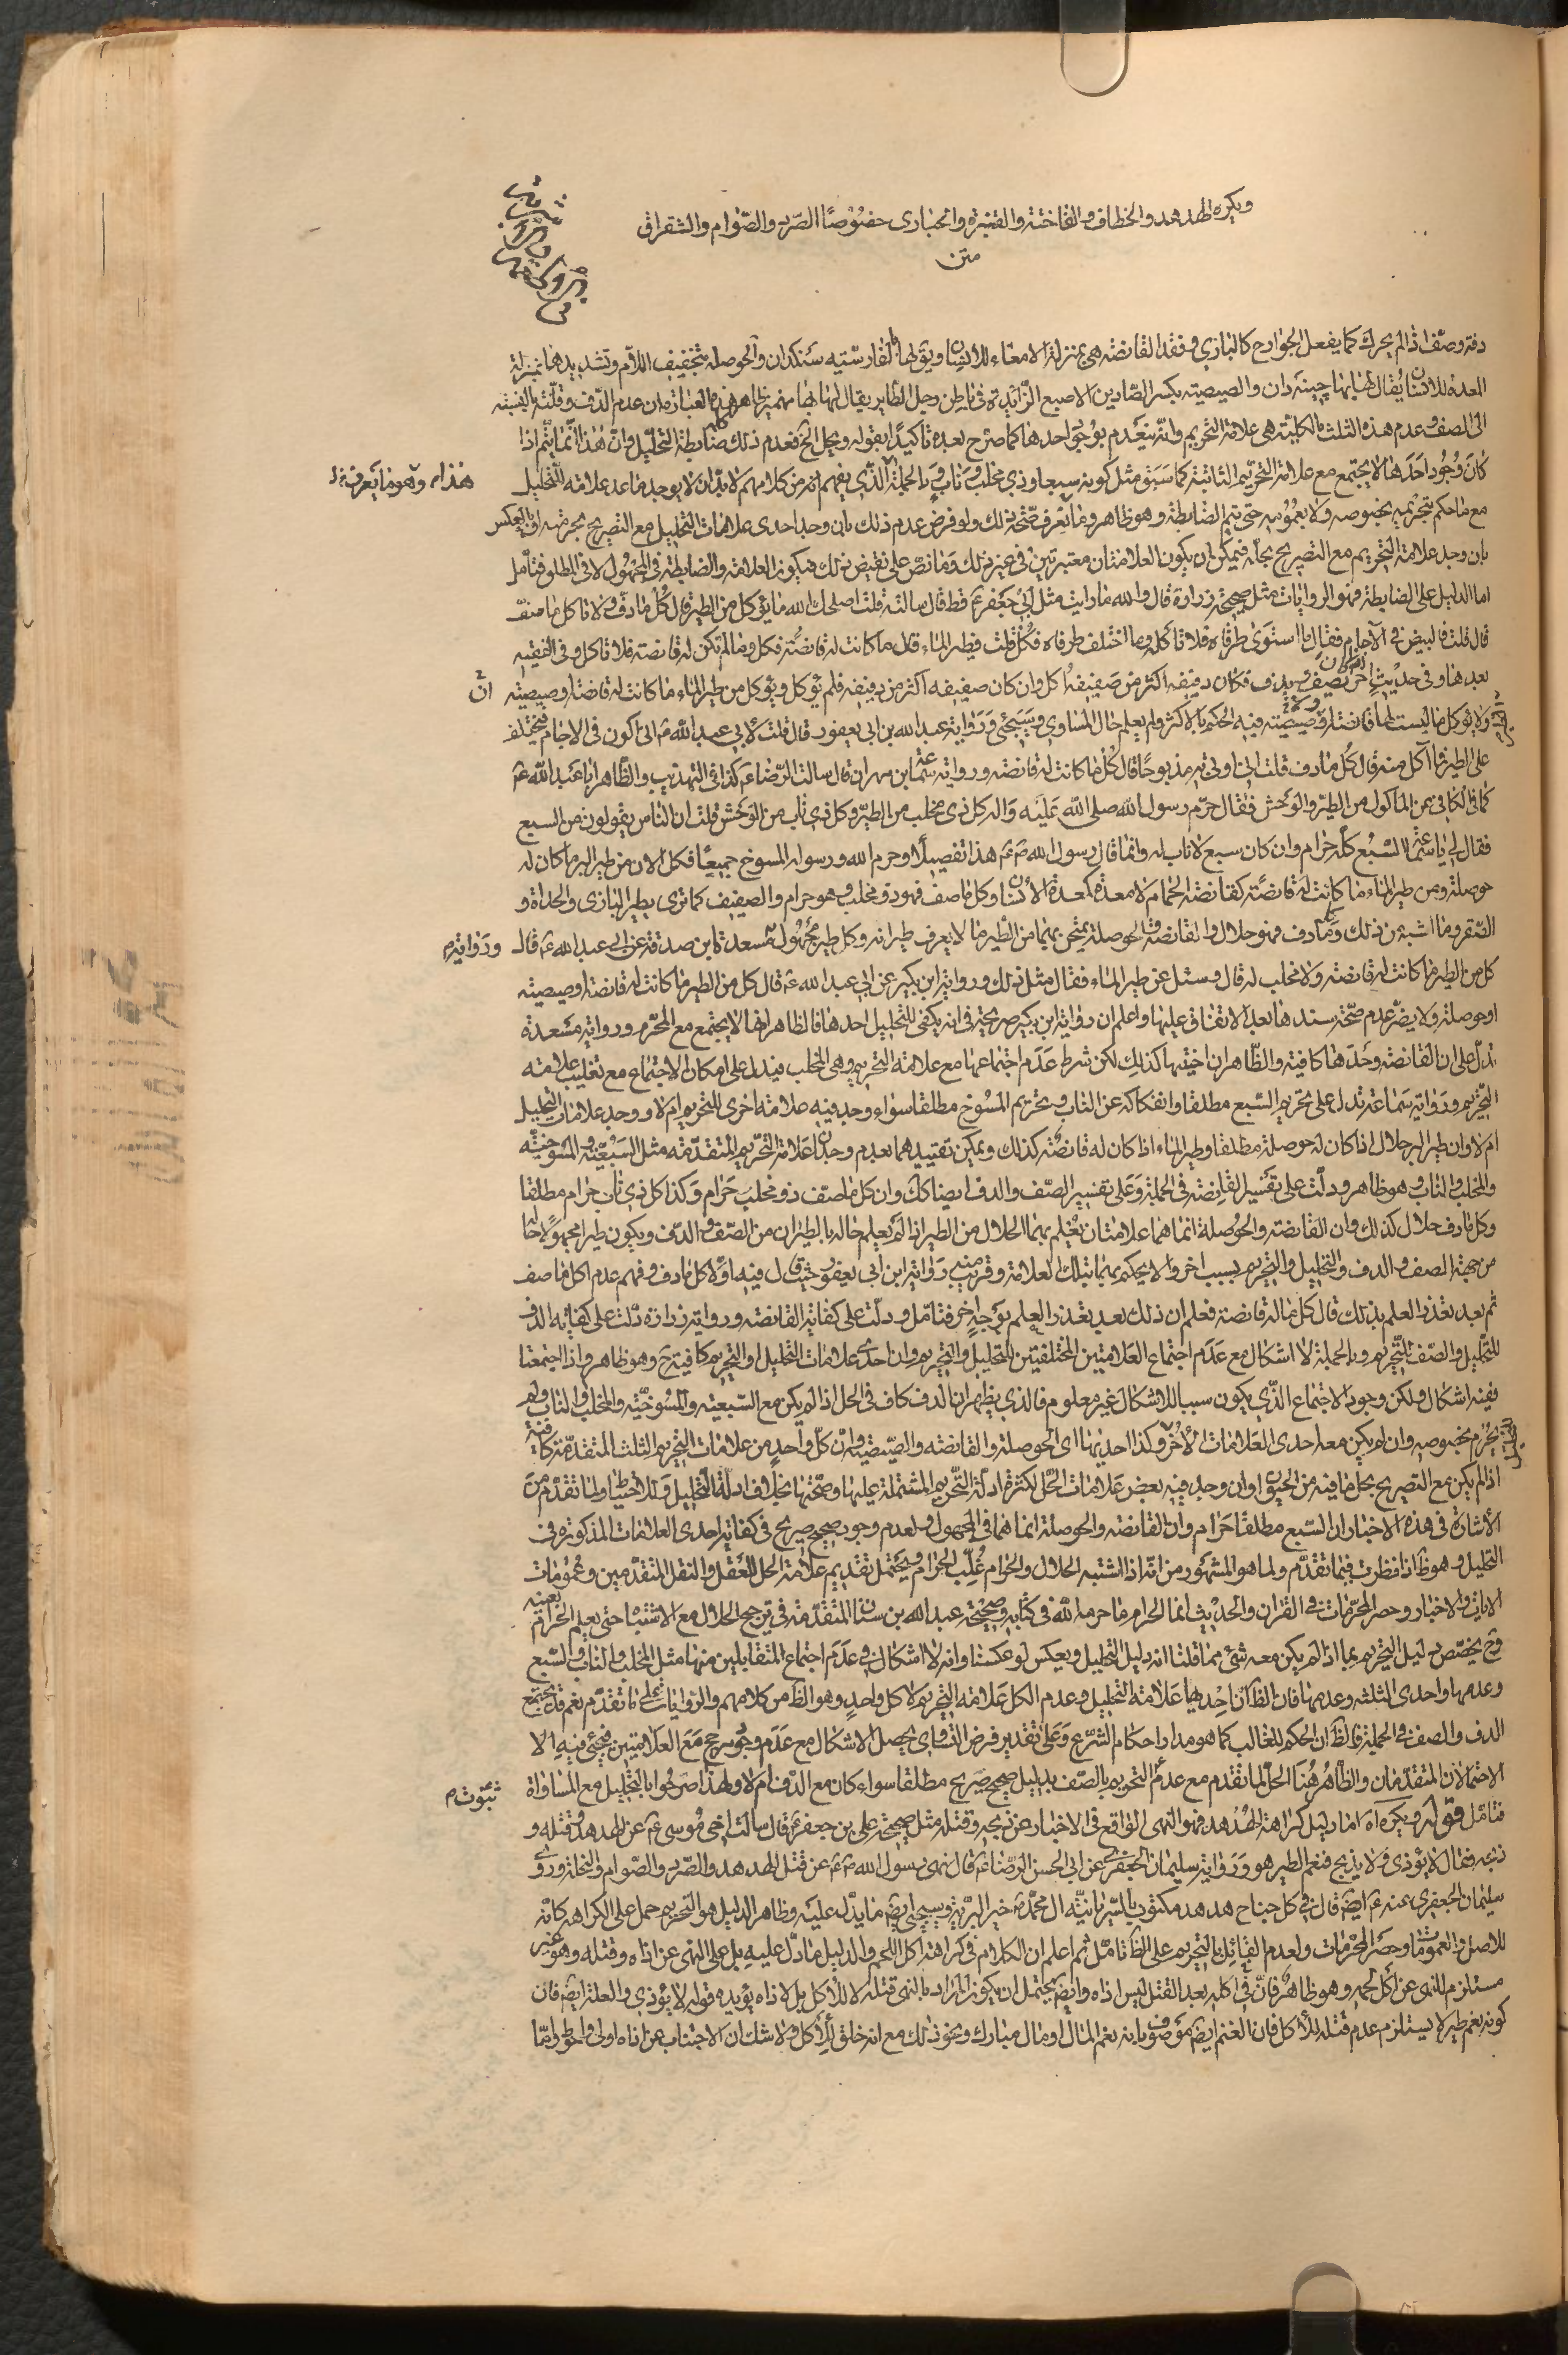 ويكره الهدهد والخطاف والفاختة والقبرة والحبارى خصوصًا الصرد والصوام والشقراق
متن
دفه وصف اذا لم يحرك كما يفعل الجوارح كالبازي وفقد القانصة هي بمنزلة الامعاء للانسان ويق لها بالفارسية سنكدان والحوصلة بتخفيف اللام وتشديدها بمنزلة
المعدة للانسان يقال لها چينه دان والصيصية بكسر الصادين الاصبع الزائدة في باطن رجل الطاير يقال لها ظاهر هذه العبارة ان عدم الدف وقلته بالنسبة
الى الصف وعدم هذه الثلث الكلية هي علامة التحريم وانه ينعدم بوجود احدها كما صرح بعده تاكيدًا بقوله ويحل الخ فعدم ذلك ضابطة التحليل وان هذا انما يتم اذا
كان وجود احدها لا يجتمع مع علامة التحريم الثابتة كما سبق مثل كونه سبعا وذي مخلب وناب وبالجملة الذي يفهم من كلامهم لا بد ان لا يوجد ما عد علامة للتحليل
مع ما حكم بتحريمه بخصوصه ولا بعمومه حتى يتم الضابطة وهو ظاهر وما نعرف صحة ذلك ولو فرض عدم ذلك بان وجد احدى علامات التحليل مع التصريح بحرمته او بالعكس
بان وجد علامة التحريم مع التصريح بحله فيمكن ان يكون العلامتان معتبرتين في غير ذلك وما نص على نقيض ذلك فيكون العلامة والضابطة في المجهول لا في المطلق فتامل
اما الدليل على الضابطة فهو الروايات مثل صحيحة زرارة قال والله ما رايت مثل ابي جعفر ع قط قال سالته قلت اصلحك الله ما يؤكل من الطير قال كل ما دف ولا تاكل ما صف
قال قلت فالبيض في الآجام فقال ما استوى طرفاه فلا تاكله وما اختلف طرفاه فكل قلت فطير الماء قال ما كانت له قانصة فكل وما لم تكن له قانصة فلا تاكل وفي الفقيه
بعدها وفي حديث آخر ان كان الطير يصف ويدف فكان دفيفه اكثر من صفيفه اكل وان كان صفيفه اكثر من دفيفه فلم يؤكل ويؤكل من طير الماء ما كانت له قانصة او صيصية
ولا يؤكل ما ليست له قانصة او صيصية فيه الحكم بالاكثر ولم يعلم حال المساوي وسيجئ ورواية عبد الله بن ابي يعفور قال قلت لابي عبد الله ع اني اكون في الآجام فيختلف
على الطير فما آكل منه قال كل ما دف قلت اني اوتى به مذبوحًا قال كل ما كانت له قانصة ورواية سماعة بن مهران قال سالت الرضا ع كذا في التهذيب والظاهر ابا عبد الله ع
كما في الكافي عن الماكول من الطير والوحش فقال حرم رسول الله صلى الله عليه واله كل ذي مخلب من الطير وكل ذي ناب من الوحش قلت ان الناس يقولون من السبع
فقال لي يا سماعة السبع كله حرام وان كان سبع لا ناب له وانما قال رسول الله ص هذا تفصيلا وحرم الله ورسوله المسوخ جميعًا فكل الآن من طير البر ما كان له
حوصلة ومن طير الماء ما كانت له قانصة كقانصة الحمام لا معدة كمعدة الانسان وكل ما صف فهو ذو مخلب وهو حرام والصفيف كما ترى يطير البازي والحداة و
الصقر وما اشبه ذلك وما دف فهو حلال والقانصة والحوصلة يمتحن بهما من الطير ما لا يعرف طيرانه وكل طير مجهول مسعدة بن صدقة عن ابي عبد الله ع قال
كل من الطير ما كانت له قانصة ولا مخلب له قال وسئل عن طير الماء فقال مثل ذلك ورواية ابن بكير عن ابي عبد الله ع قال كل من الطير ما كانت له قانصة او صيصية
او حوصلة ولا يضر عدم صحة سندها بعد الاتفاق عليها واعلم ان رواية ابن بكير صريحة في انه يكفي للتحليل احدها فالظاهر انها لا يجتمع مع المحرم ورواية مسعدة
تدل على ان القانصة وحدها كافية والظاهر ان اختيها كذلك لكن شرط عدم اجتماعها مع علامة التحريم وهي المخلب فيدل على امكان الاجتماع مع تغليب علامة
التحريم ورواية سماعة تدل على تحريم السبع مطلقا وانفكاكه عن الناب وتحريم المسوخ مطلقا سواء وجد فيه علامة اخرى للتحريم ام لا ووجد علامات التحليل
ام لا وان طير البر حلال اذا كان له حوصلة مطلقا وطير الماء اذا كان له قانصة كذلك ويمكن تقييدهما بعدم وجدان علامة التحريم المتقدمة مثل السبعية والمسوخية
والمخلب والناب وهو ظاهر ودلت على تفسير القانصة في الجملة وعلى تفسير الصف والدف ايضا كك وان كل ما صف ذو مخلب حرام وكذا كل ذي ناب حرام مطلقا
وكل ما دف حلال كذلك وان القانصة والحوصلة انما هما علامتان يعلم بهما الحلال من الطير اذا لم يعلم حاله بالطيران من الصف والدف ويكون طيرا مجهولا حا
من جهة الصف والدف والتحليل والتحريم بسبب اخر والا يحكم بهما بتلك العلامة وقريب منه رواية ابن ابي يعفور حيث قال فيه اولا كل ما دف وفهم عدم اكل ما صف
ثم بعد تعذر العلم بذلك قال كل ماله قانصة فعلم ان ذلك بعد تعذر العلم بوجه اخر فتامل ودلت على كفاية القانصة ورواية زرارة دلت على كفاية الدف
للتحليل والصف للتحريم وبالجملة لا اشكال مع عدم اجتماع العلامتين المختلفتين للتحليل والتحريم وان احدى علامات التحليل او التحريم كافية ح وهو ظاهر واذا اجتمعتا
ففيه اشكال ولكن وجود الاجتماع الذي يكون سببا للاشكال غير معلوم فالذي يظهر ان الدف كاف في الحل اذا لم يكن مع السبعية والمسوخية والمخلب والناب ولم
يحرم بخصوصه وان لم يكن معه احدى العلامات الاخر وكذا احديها اى الحوصلة والقانصة والصيصية وان كل واحد من علامات التحريم الثلث المتقدمة كافية
اذا لم يكن مع التصريح بحل ما فيه من الحيوان وان وجد فيه بعض علامات الحل لكثرة ادلة التحريم المشتملة عليها وصحتها بخلاف ادلة التحليل وللاحتياط ولما تقدم من
الاشارة في هذه الاخبار ان السبع مطلقا حرام وان القانصة والحوصلة انما هما في المجهول ولعدم وجود صحيح صريح في كفاية احدى العلامات المذكورة في
التحليل وهو ظ اذا نظرت فيما تقدم ولما هو المشهور من انه اذا اشتبه الحلال والحرام غلب الحرام ويحتمل تقديم علامة الحل للعقل والنقل المتقدمين وعمومات
الايات والاخبار وحصر المحرمات في القران والحديث انما الحرام ما حرمه الله في كتابه وصحيحة عبد الله بن سنان المتقدمة في ترجيح الحلال مع الاشتباه حتى يعلم الحرام بعينه
وح يخصص دليل التحريم بما اذا لم يكن معه شئ مما قلنا انه دليل التحليل ويعكس لو عكسنا وانه لا اشكال في عدم اجتماع المتقابلين منها مثل المخلب والناب والسبع
وعدمها واحدى الثلثة وعدمها فان الظ ان احديها علامة التحليل وعدم الكل علامة التحريم لا كل واحد وهو الظ من كلامهم والروايات على ما تقدم نعم قد يجتمع
الدف والصف في الجملة فالظ ان الحكم للغالب كما هو مدار احكام الشرع وعلى تقدير فرض التساوي يحصل الاشكال مع عدم وجود مرجح مع العلامتين فيجئ فيه الا
الاحتمالان المتقدمان والظاهر هنا الحل لما تقدم مع عدم التحريم بالصف بدليل صحيح صريح مطلقا سواء كان مع الدف ام لا ولهذا صرحوا بالتحليل مع المساواة
فتامل قوله ويكره اه اما دليل كراهة الهدهد فهو النهى الواقع في الاخبار عن ذبحه وقتله مثل صحيحة علي بن جعفر ع قال سالت اخي موسى ع عن الهدهد وقتله و
ذبحه فقال لا يؤذى ولا يذبح فنعم الطير هو ورواية سليمان الجعفري عن ابي الحسن الرضا ع قال نهى رسول الله ص عن قتل الهدهد والصرد والصوام والنحلة وروى
سليمان الجعفري عنه ع ايض قال في كل جناح هدهد مكتوب بالسريانية ال محمد ص خير البرية وسيجئ ايض ما يدل عليه وظاهر الدليل هو التحريم حمل على الكراهة كانه
للاصل والعمومات وحصر المحرمات ولعدم القائل بالتحريم على الظ تامل ثم اعلم ان الكلام في كراهة اكل اللحم والدليل ما دل عليه بل على النهى عن اذاه وقتله وهو غير
مستلزم للنهى عن اكل لحمه وهو ظاهر فان في اكله بعد القتل ليس اذاه وايض يحتمل ان يكون المراد بالنهى قتله لا للاكل بل لاذاه يؤيده قوله لا يؤذى والعلة ايض فان
كونه نعم طير لا يستلزم عدم قتله للاكل فان الغنم ايض موصوف بانه نعم المال او مال مبارك ونحو ذلك مع انه خلق للاكل ولا شك ان الاجتناب عن اذاه اولى واحوط واما